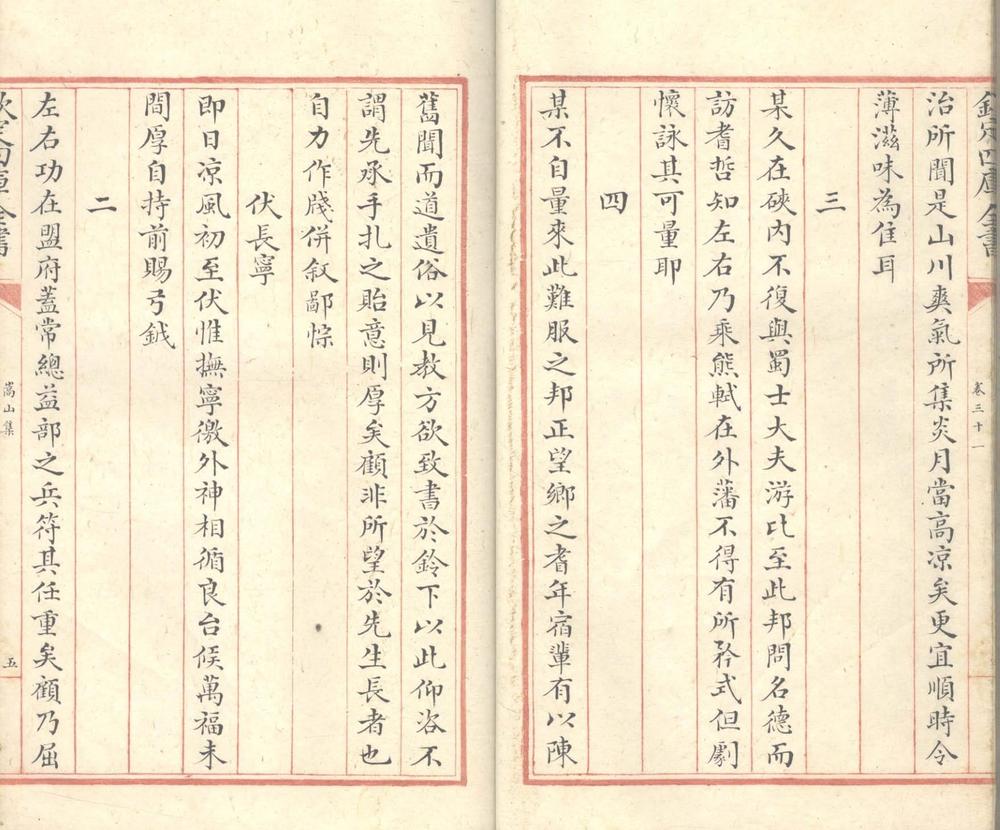 欽定四庫全書
卷三十一
治所聞是山川爽氣所集炎月當高凉矣更宜順時令
薄滋味為隹耳
三
某久在硤内不復與蜀士大夫游比至此邦問名德而
訪耆哲知左右乃乘熊軾在外藩不得有所矜式但劇
懷詠其可量耶
四
某不自量來此難服之邦正望鄉之耆年宿軰有以陳
舊聞而道遺俗以見教方欲致書於鈴下以此仰咨不
謂先承手扎之貽意則厚矣顧非所望於先生長者也
自力作牋併叙鄙悰
伏長寧
即日凉風初至伏惟撫寧徼外神相循良台候萬福未
間厚自持前賜弓鉞
二
左右功在盟府蓋常總益部之兵符其任重矣顧乃屈
欽定四庫全書
嵩山集
五